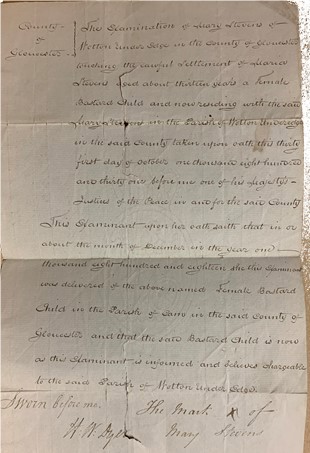 County
of
Gloucester
The Examination of Mary Stevens of
Wotton Under Edge in the County of Gloucester
touching the lawful Settlement of Maria
Stevens aged about thirteen years a Female
Bastard Child and now residing with the said
Mary Stevens in the Parish of Wotton Underedge
in the said County taken upon oath this thirty
first day of October one thousand eight hundred
and thirty one before me one of his Majesty's
Justices of the Peace in and for the said County
This Examinant upon her oath saith that in or
about the month of December in the year one
thousand eight hundred and eighteen she this Examinant
was delivered of the above named Female Bastard
Child in the Parish of Cam in the said County of
Gloucester and that the said Bastard Child is now
as this Examinant is informed and believes chargeable
to the said Parish of Wotton Under Edge.
Sworn before me.
The Mark X of
H. W. Dyer
Mary Stevens